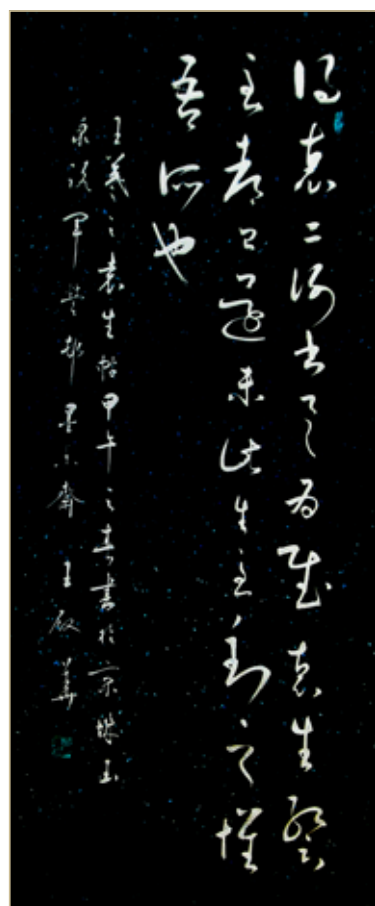 得袁二謝書具為慰袁生暫
至都已還未此生至到之懷
吾所也
王羲之袁生帖甲午之春書於京畿玉
泉路軍營邨墨齋王啟